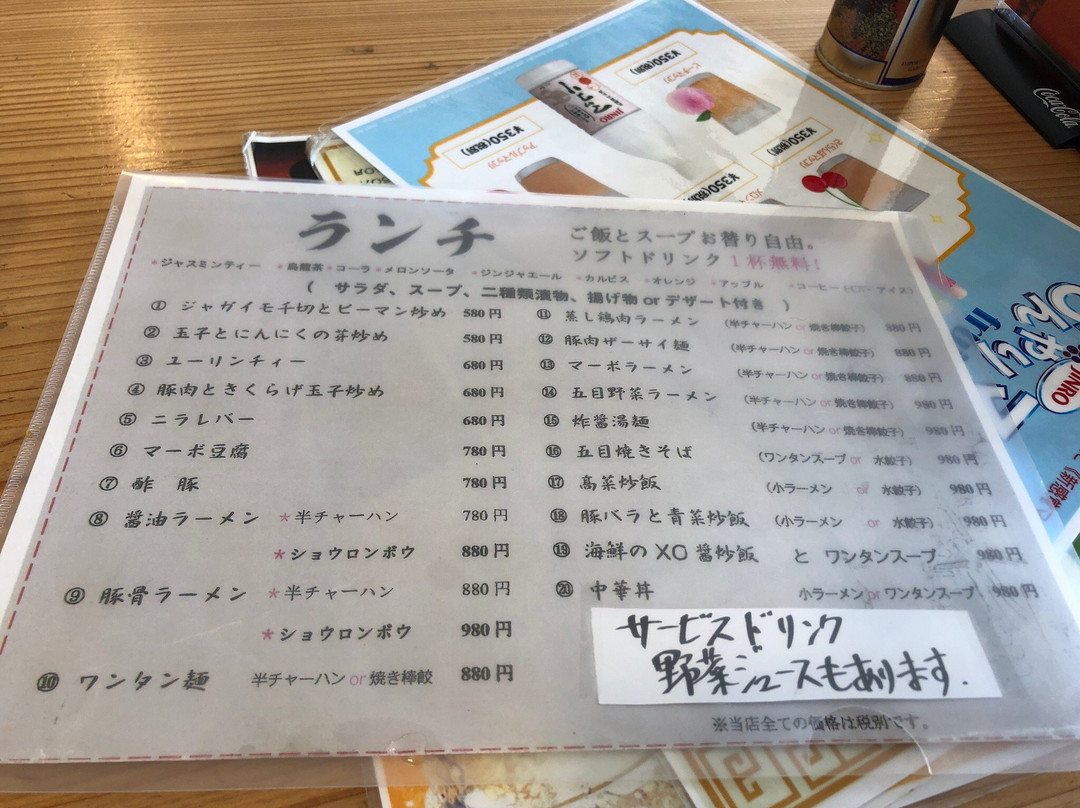 ランチ
ご飯とスープお替り自由。
ソフトドリンク1杯無料!
*ジャスミンティー *烏龍茶 *コーラ *メロンソーダ *ジンジャエール *カルピス *オレンジ *アップル *コーヒー(HOT/アイス)
( サラダ、スープ、二種類漬物、揚げ物orデザート付き )
① ジャガイモ千切とピーマン炒め 580円
② 玉子とにんにくの芽炒め 580円
③ ユーリンティー 680円
④ 豚肉ときくらげ玉子炒め 680円
⑤ ニラレバー 680円
⑥ マーボ豆腐 780円
⑦ 酢豚 780円
⑧ 醤油ラーメン *半チャーハン 780円
*ショウロンボウ 880円
⑨ 豚骨ラーメン *半チャーハン 880円
*ショウロンボウ 980円
⑩ ワンタン麺 半チャーハンor焼き棒餃 880円
⑪ 蒸し鶏肉ラーメン (半チャーハンor焼き棒餃子) 880円
⑫ 豚肉ザーサイ麺 (半チャーハンor焼き棒餃子) 880円
⑬ マーボラーメン (半チャーハンor焼き棒餃子) 880円
⑭ 五目野菜ラーメン (半チャーハンor焼き棒餃子) 980円
⑮ 炸醤湯麺 (半チャーハンor焼き棒餃子) 980円
⑯ 五目焼きそば (ワンタンスープor 水餃子) 980円
⑰ 高菜炒飯 (小ラーメン or 水餃子) 980円
⑱ 豚バラと青菜炒飯 (小ラーメン or 水餃子) 980円
⑲ 海鮮のXO醤炒飯 と ワンタンスープ 980円
⑳ 中華丼 小ラーメンorワンタンスープ 980円
サービスドリンク
野菜ジュースもあります.
※当店全ての価格は税別です。
¥350(税別)
ピーチマッコ
¥350(税別)
アップルマッコ
¥350(税別)
さくらんぼマッコ
¥350(税別)
JINRO
JINRO
Coca-Cola